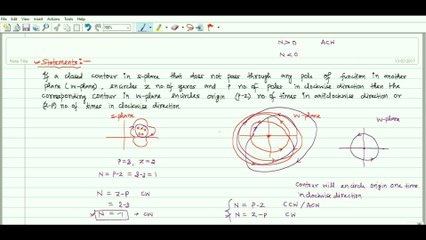 N>0 ACW
N<0
Note Title
Statements:
If a closed contour in s-plane that does not pass through any pole of function in another
plane (W-plane), encircles z no. of zeros and P no. of poles in clockwise direction then the
corresponding contour in W-plane encircles origin (P-Z) no. of times in anticlockwise direction or
(Z-P) no. of times in clockwise direction
s-plane
W-plane
W-plane
N = P-Z =
N = Z-P CW
N = -1 → CW
Contour will encircle origin one time
in clockwise direction
N = P-Z CCW/ACW
N = Z-P CW